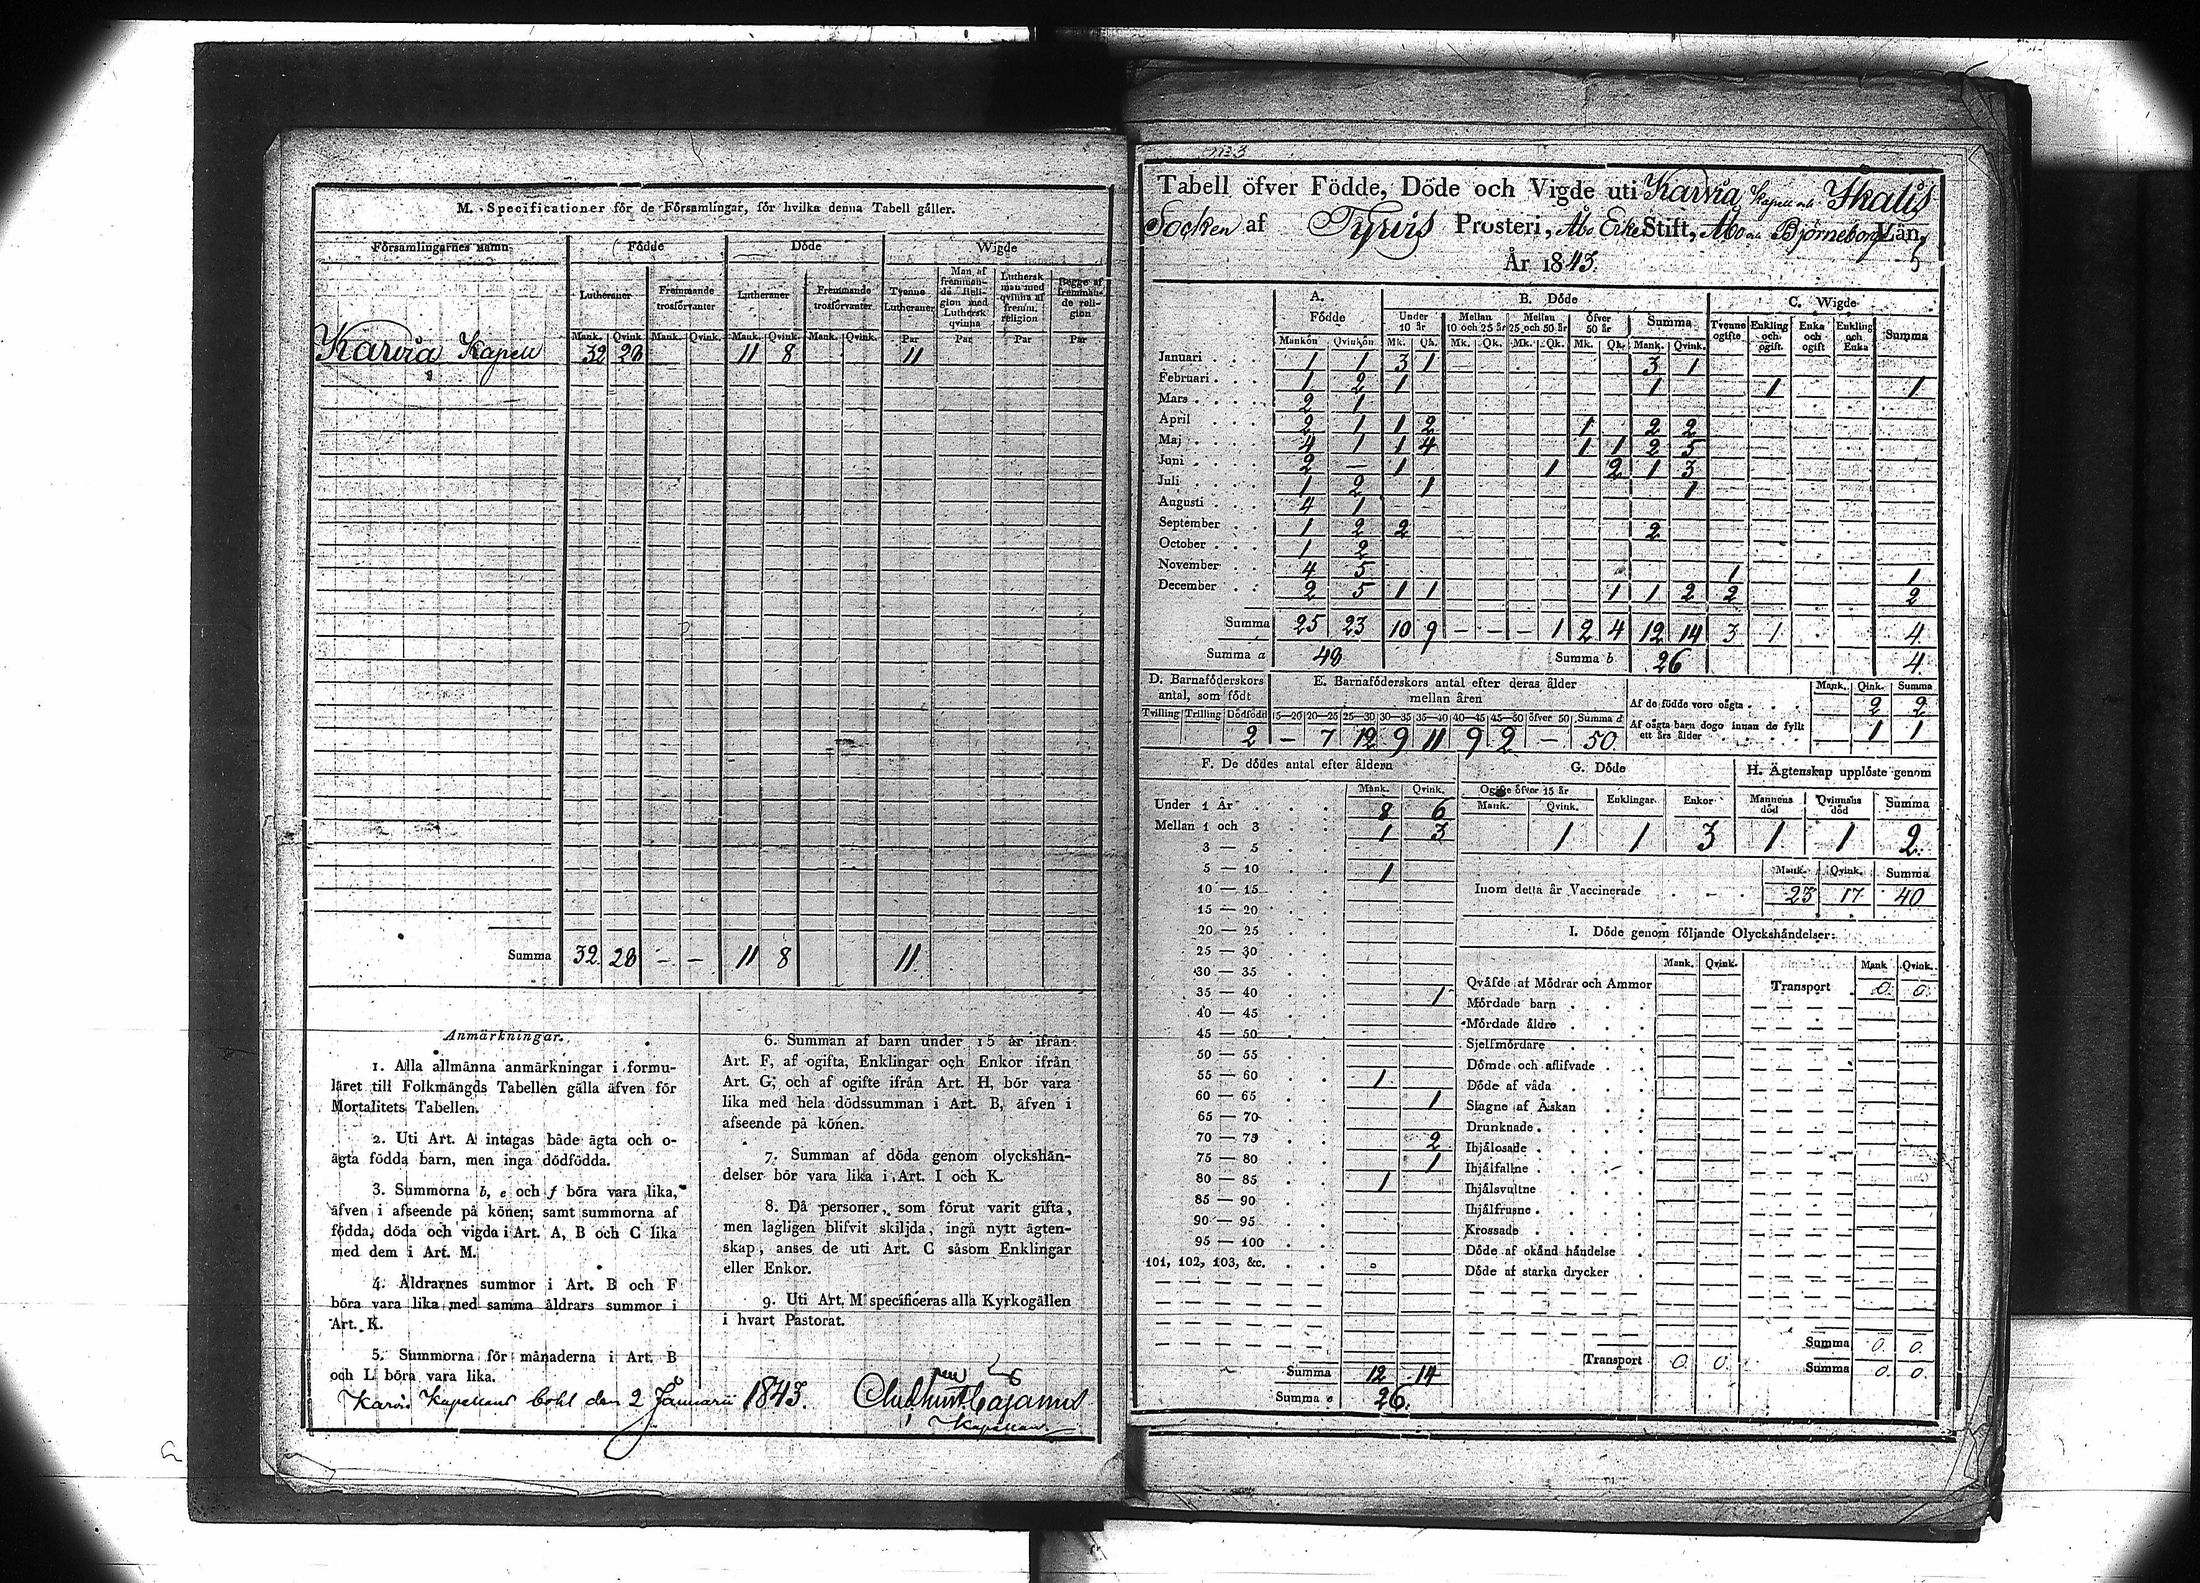 M. Specificationer för de Församlingar, för hvilka denna Tabell gäller.
Församlingarnes namn Födde Döde Wigde
Lutheraner Fremmande trosförvanter Lutheraner Fremmande trosförvanter Tvenne Lutheraner Man af fremmande Religion med Luthersk qvinna Luthersk man med qvinna af fremm. religion Begge af fremmande religion
Mank. Qvink. Mank. Qvink. Mank. Qvink. Mank. Qvink. Par Par Par Par
Karvia Kapell 32 28 11 8 11
Summa 32 28 — — 11 8 11
Anmärkningar.
1. Alla allmänna anmärkningar i formu-
läret till Folkmängds Tabellen gälla äfven för
Mortalitets Tabellen.
2. Uti Art. A intagas både ägta och o-
ägta födda barn, men inga dödfödda.
3. Summorna b, e och f böra vara lika,
äfven i afseende på könen; samt summorna af
födda, döda och vigda i Art. A, B och C lika
med dem i Art. M.
4. Åldrarnes summor i Art. B och F
böra vara lika med samma åldrars summor i
Art. K.
5. Summorna för månaderna i Art. B
och L böra vara lika.
6. Summan af barn under 15 år ifrån
Art. F, af ogifta, Enklingar och Enkor ifrån
Art. G, och af ogifte ifrån Art. H, bör vara
lika med hela dödssumman i Art. B, äfven i
afseende på könen.
7. Summan af döda genom olyckshän-
delser bör vara lika i Art. I och K.
8. Då personer, som förut varit gifta,
men lagligen blifvit skiljda, ingå nytt ägten-
skap, anses de uti Art. C såsom Enklingar
eller Enkor.
9. Uti Art. M specificeras alla Kyrkogällen
i hvart Pastorat.
Karvia Kapellans bohl den 2 Januarii 1843.
Cajanus
Kapellan
No 3
Tabell öfver Födde, Döde och Vigde uti Karvia Kapell och Ikalis
Socken af Tyrvis Prosteri, Åbo Erke Stift, Åbo och Björneborgs Län,
År 1843.
A. Födde B. Döde C. Wigde
Under 10 år Mellan 10 och 25 år Mellan 25 och 50 år Öfver 50 år Summa Tvenne ogifte Enkling och ogift Enka och ogift Enkling och Enka Summa
Mankön Qvinkön Mk. Qk. Mk. Qk. Mk. Qk. Mk. Qk. Mank. Qvink.
Januari 1 1 3 1 3 1
Februari 1 2 1 1 1 1
Mars 2 1
April 2 1 1 2 1 2 2
Maj 4 1 1 4 1 1 2 5
Juni 2 — 1 1 2 1 3
Juli 1 2 1 1
Augusti 4 1 - -
September 1 2 2 2
October 1 2
November 4 5 1 1
December 2 5 1 1 1 1 2 2 2
Summa 25 23 10 9 — — — 1 2 4 12 14 3 1 4
Summa a 48 Summa b 26 4
D. Barnaföderskors antal, som födt E. Barnaföderskors antal efter deras ålder mellan åren Mank. Qink. Summa
Tvilling Trilling Dödfödt 15—20 20—25 25—30 30—35 35—40 40—45 45—50 öfver 50 Summa d
2 — 7 12 9 11 9 2 — 50
Af de födde voro oägta 2 2
Af oägta barn dogo innan de fyllt ett års ålder 1 1
F. De dödes antal efter åldern
Mank. Qvink.
Under 1 År 8 6
Mellan 1 och 3 1 3
3 — 5
5 — 10 1
10 — 15
15 — 20
20 — 25
25 — 30
30 — 35
35 — 40 1
40 — 45
45 — 50
50 — 55
55 — 60 1
60 — 65 1
65 — 70
70 — 75 2
75 — 80 1
80 — 85 1
85 — 90
90 — 95
95 — 100
101, 102, 103, &c.
Summa 12 14
Summa e 26.
G. Döde H. Ägtenskap upplöste genom
Ogifte öfver 15 år Enklingar Enkor Mannens död Qvinnans död Summa
Mank. Qvink.
1 1 3 1 1 2
Mank. Qvink. Summa
Inom detta år Vaccinerade 23 17 40
I. Döde genom följande Olyckshändelser:
Mank. Qvink. Mank Qvink.
Qväfde af Mödrar och Ammor Transport 0 0
Mördade barn
Mördade äldre
Sjelfmördare
Dömde och aflifvade
Döde af våda
Slagne af Åskan
Drunknade
Ihjälosade
Ihjälfallne
Ihjälsvultne
Ihjälfrusne
Krossade
Döde af okänd händelse
Döde af starka drycker
Summa 0 0
Transport 0 0 Summa 0 0